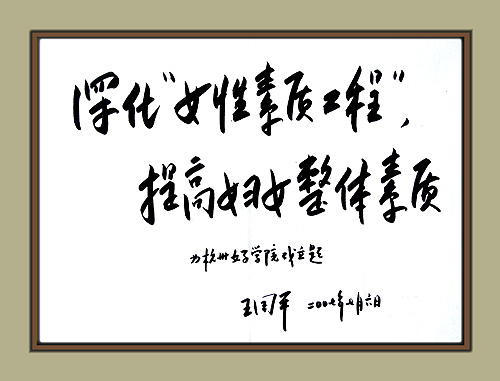 深化“女性素质工程”，
提高妇女整体素质
为杭州女子学院成立题
王国平 二〇〇七年七月六日